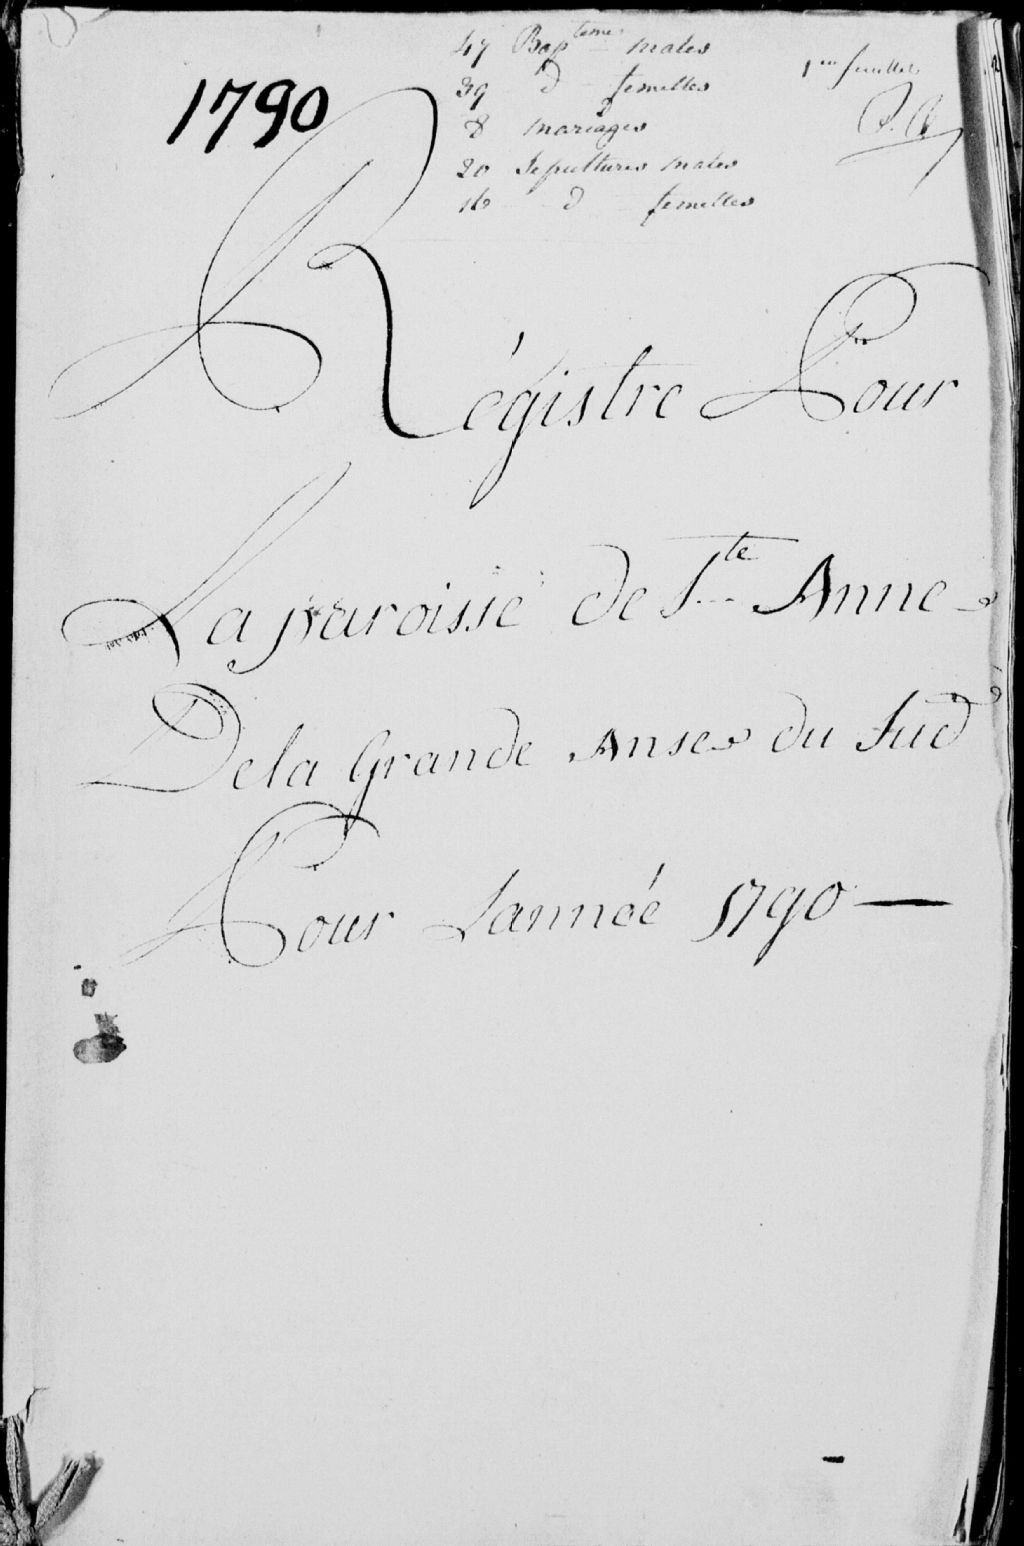 1790
47 Baptemes males
39 d femelles
8 mariages
20 Sepultures males
16 d femelles
1er feuillet
Régistre Pour
La paroisse de Ste Anne
De la Grande Anse du Sud
Pour Lannéé 1790 —